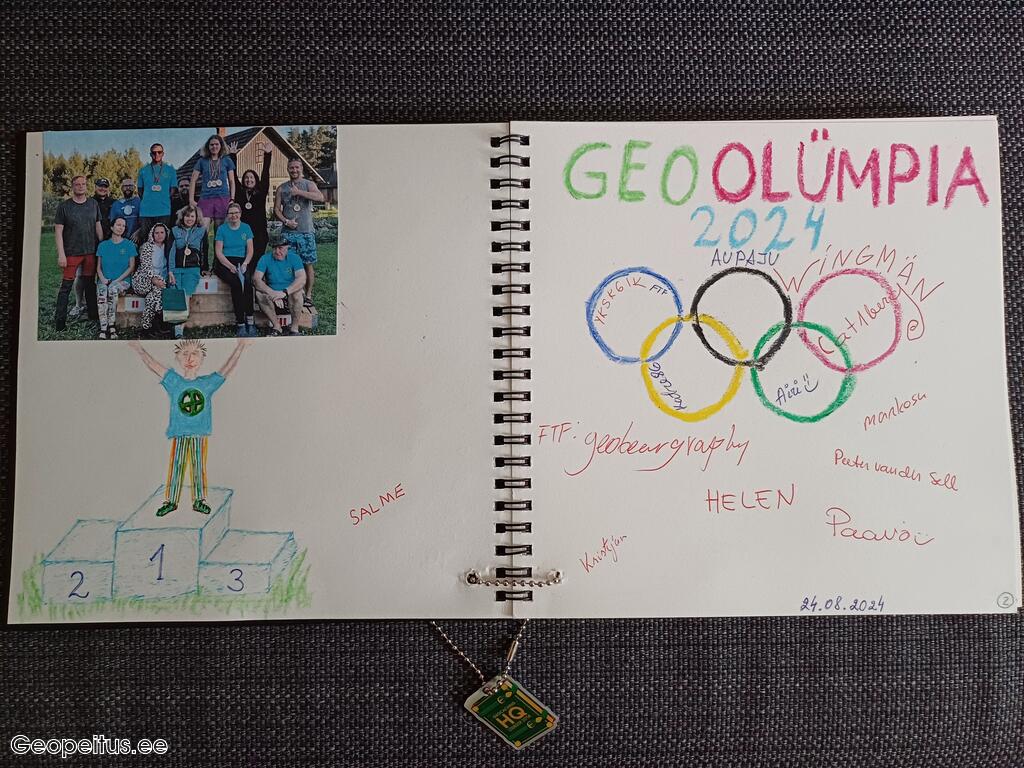 SALME
2
1
3
GEOOLÜMPIA
2024
AUPAJU
WINGMÄN
YKSKGIK FTF
Kadre86
Airi
markosu
FTF: geobeargraphy
Peeter vander Sell
HELEN
Paavo
Kristjan
24.08.2024
2
HQ
Geopeitus.ee